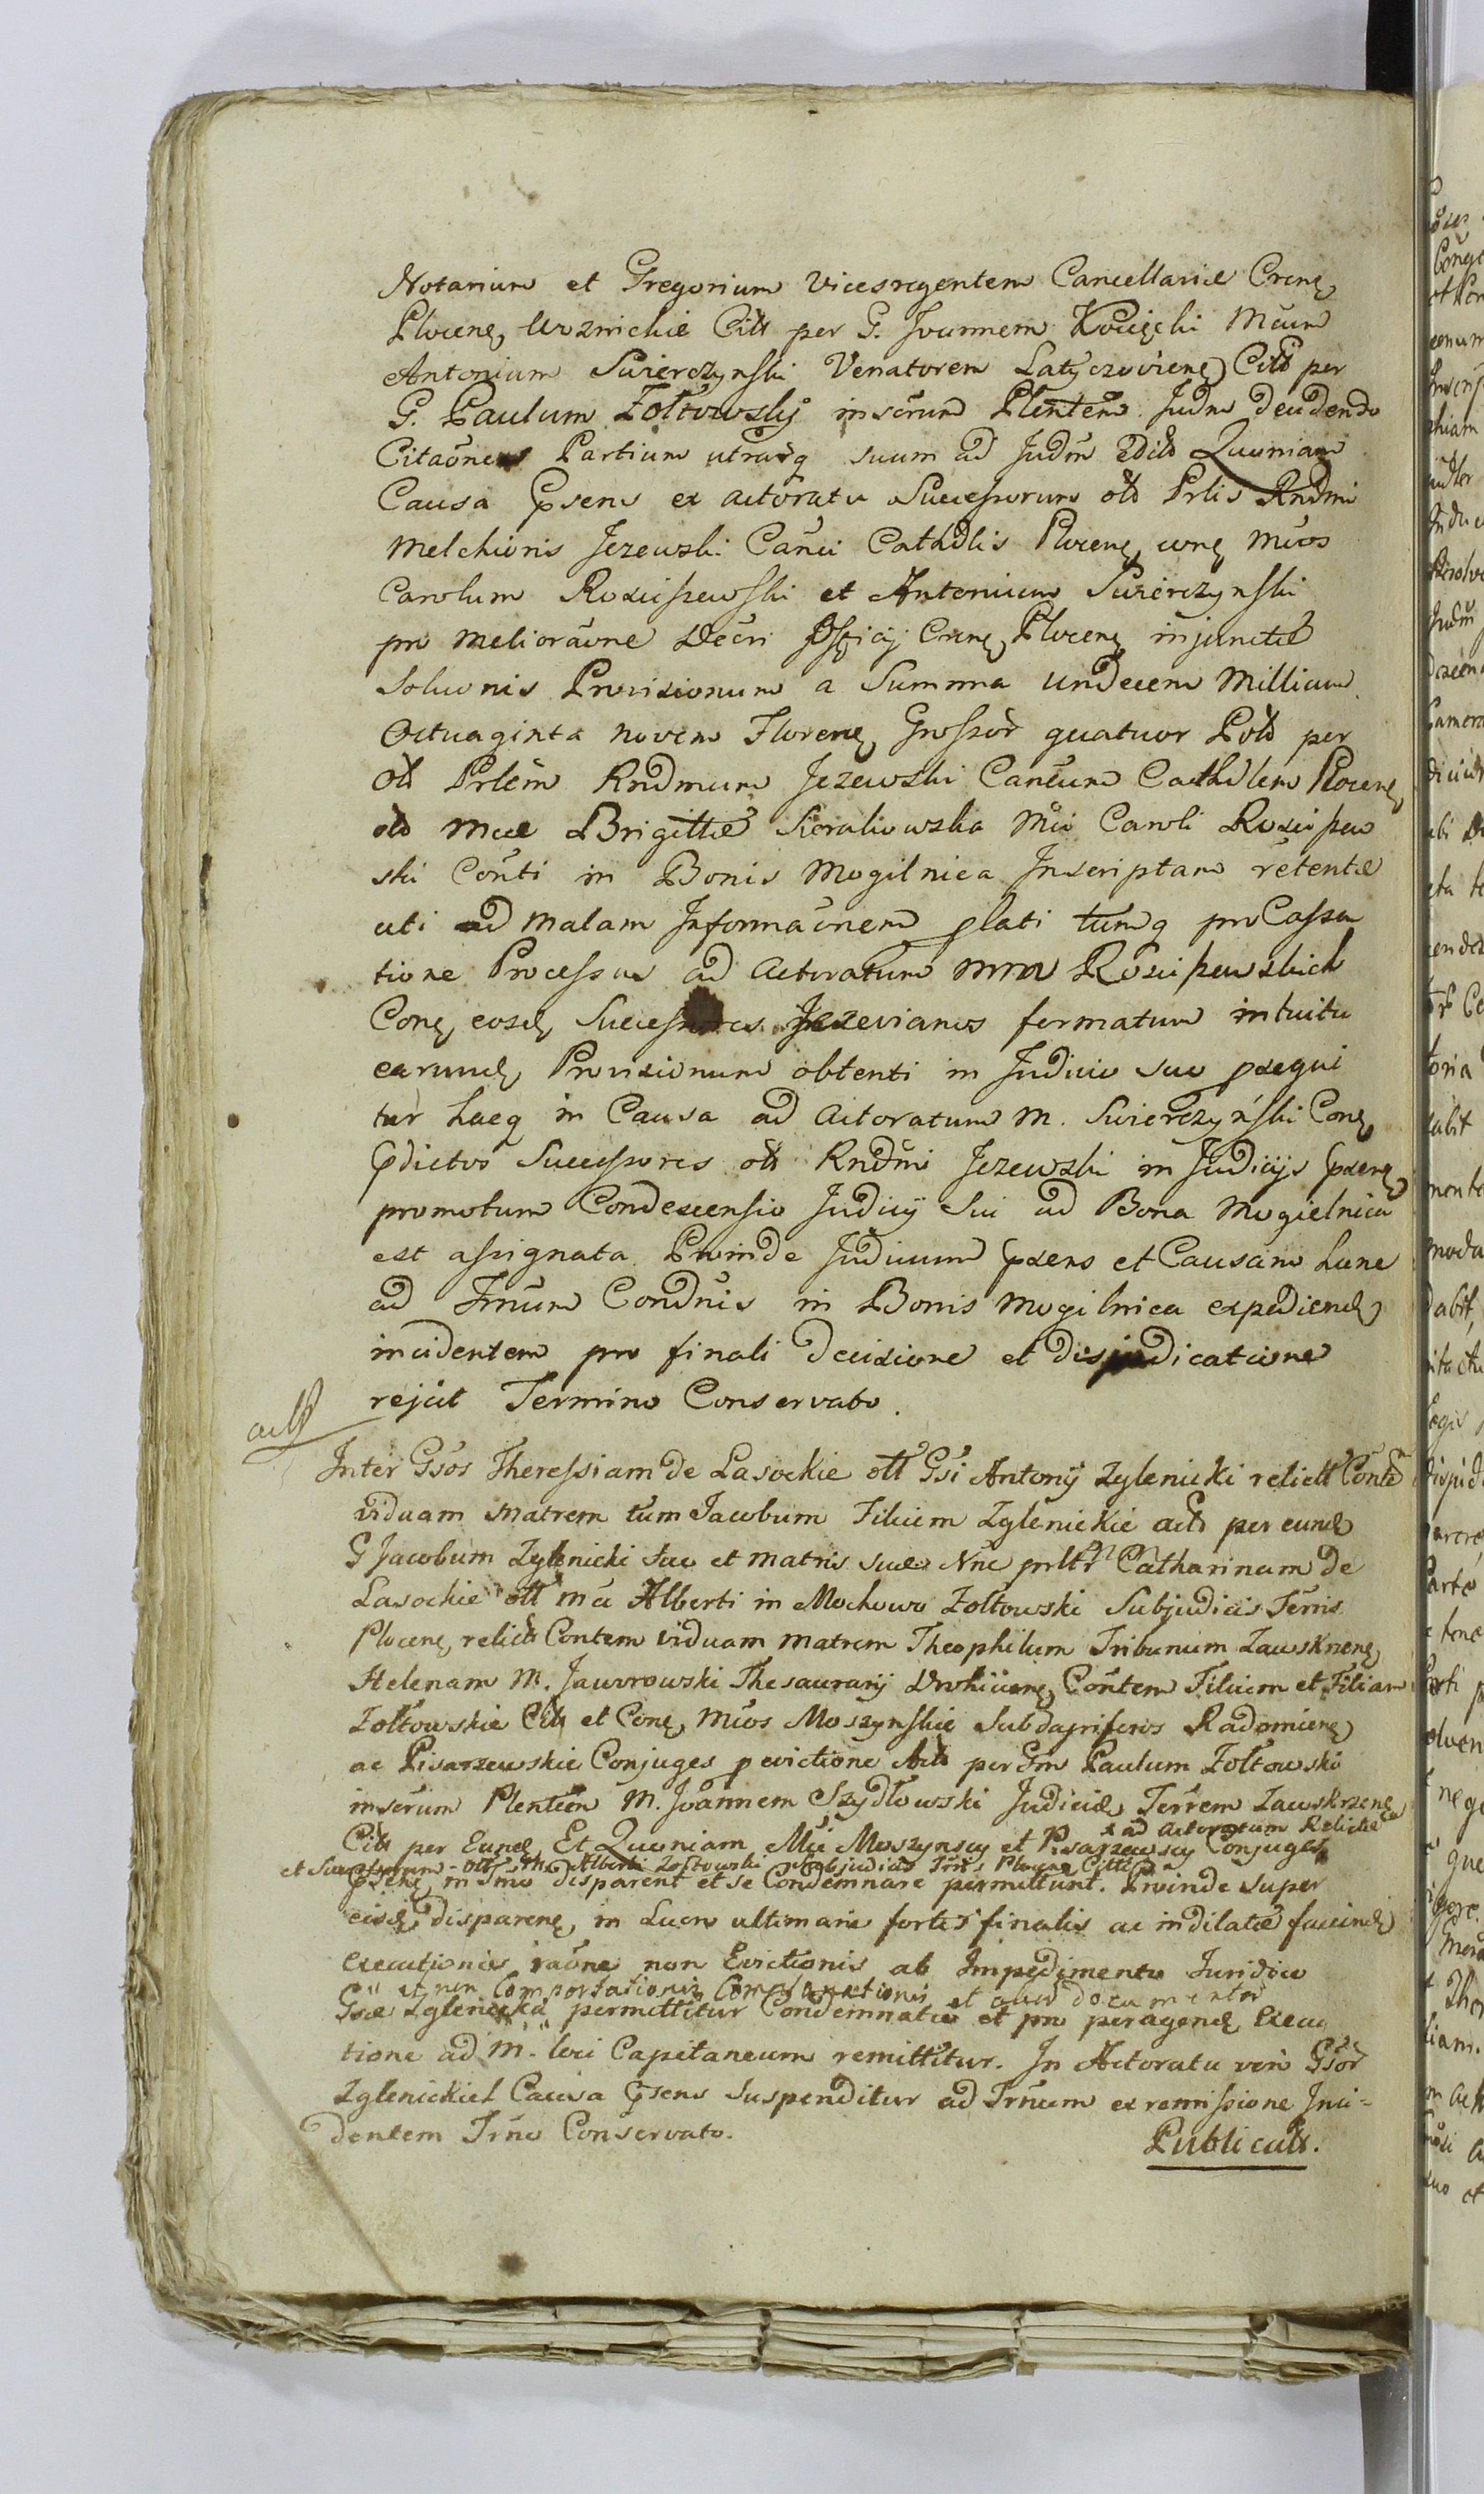 Notarium et Gregorium Vicesregentem Cancellariæ Crens
Plocens, Uroznickie Citt per G. Joannem Kocięcki Mcum
Antonium Swierczynski Venatorem Latyczoviens Citt per
G. Paulum Zołtowskij inserum Plentem. Judm decidendo
Citaōnem Partium utrasq suum ad Judm edito Quoniam
Causa Psens ex actoratu Successorum olb Prlis Rndmi
Melchioris Jezewski Canci Cathdlis Plocens, cons Mcos
Carolum Rosciszewski et Antonium Swierczynski
pro melioraōne Decri Officij Crens Plocens injunctæ
Soluōnis Provisionum a Summa undecem Millium
Octuaginta novem Florens, Grossor quatuor Polb per
Olb Prlem Rndmum Jezewski Cancum Cathdlem Plocens
olb Mcæ Brigittæ Sieraliowska Mci Caroli Roscisew
ski Conti in Bonis Mogilnica Inscriptam retentæ
uti ad Malam Informaōnem plati tumq pro Cassa
tione Processus ad Actoratum mm Rosciszewskich
Cons, eosd, Successores Jezevianos formatum intuitu
earund, Provisionum obtenti in Judicio suo psequi
tur haeq in Causa ad Actoratum M. Swierczyński Cons
Pdictos Successores olb Rndmi Jezewski in Judicijs psens
promotum Condescensio Judicij Sui ad Bona Mogielnica
est assignata Proinde Judicium psens et Causam hanc
ad Trnum Condnis in Bonis Mogilnica expediend
incidentem pro finali decisione et disjudicatione
rejcit Termino Conservato.
act
Inter Gsos Theressiam de Lasockie olt Gsi Antonij Zglenicki relict Conte
viduam Matrem tum Jacobum Filium Zglenickie act per eund
G Jacobum Zglenicki suo et matris suæ Nne prltr Catharinam de
Lasockie olt Mci Alberti in Mochowo Zołtowski Subjudicis Terris
Plocens, relict Contem viduam Matrem Theophilum Tribunum Zawskrens
Helenam M. Jaworowski Thesaurarij Drohiciens, Contem Filium et Filiam
Zołtowskie Citt et Cons, Mcos Moszynskie Subdapiferos Radomiens
ac Pisarzewskie Conjuges p evictione Act per Gm Paulum Zołtowski
inserum Plentem M. Joannem Szydłowski Judicem Terrem Zawskrzens
Citt per Eund, Et Quoniam Mci Moszynscy et Pisarzewscy Conjuges
x ad Actoratum Relictæ
et Successorum olt M. Alberti Zołtowski Subjudicis Trris Plocens Citti
Psens, in Trno disparent et se Condemnare permittunt. Proinde super
eisd, disparens, in Lucro ultimariæ fortis finalis ac indilatæ faciend
executionis raōne non Evictionis ab Impedimento Juridico
et non Comportationis Comparationis et alior documentor
Gsæ Zglenicka permittitur Condemnatio et pro peragend, Execu
tione ad M. loci Capitaneum remittitur. In Actoratu vero Gsor
Zglenickich Causa Psens suspenditur ad Trnum ex remissione Inci-
dentem Trno Conservato.
Publicatt.